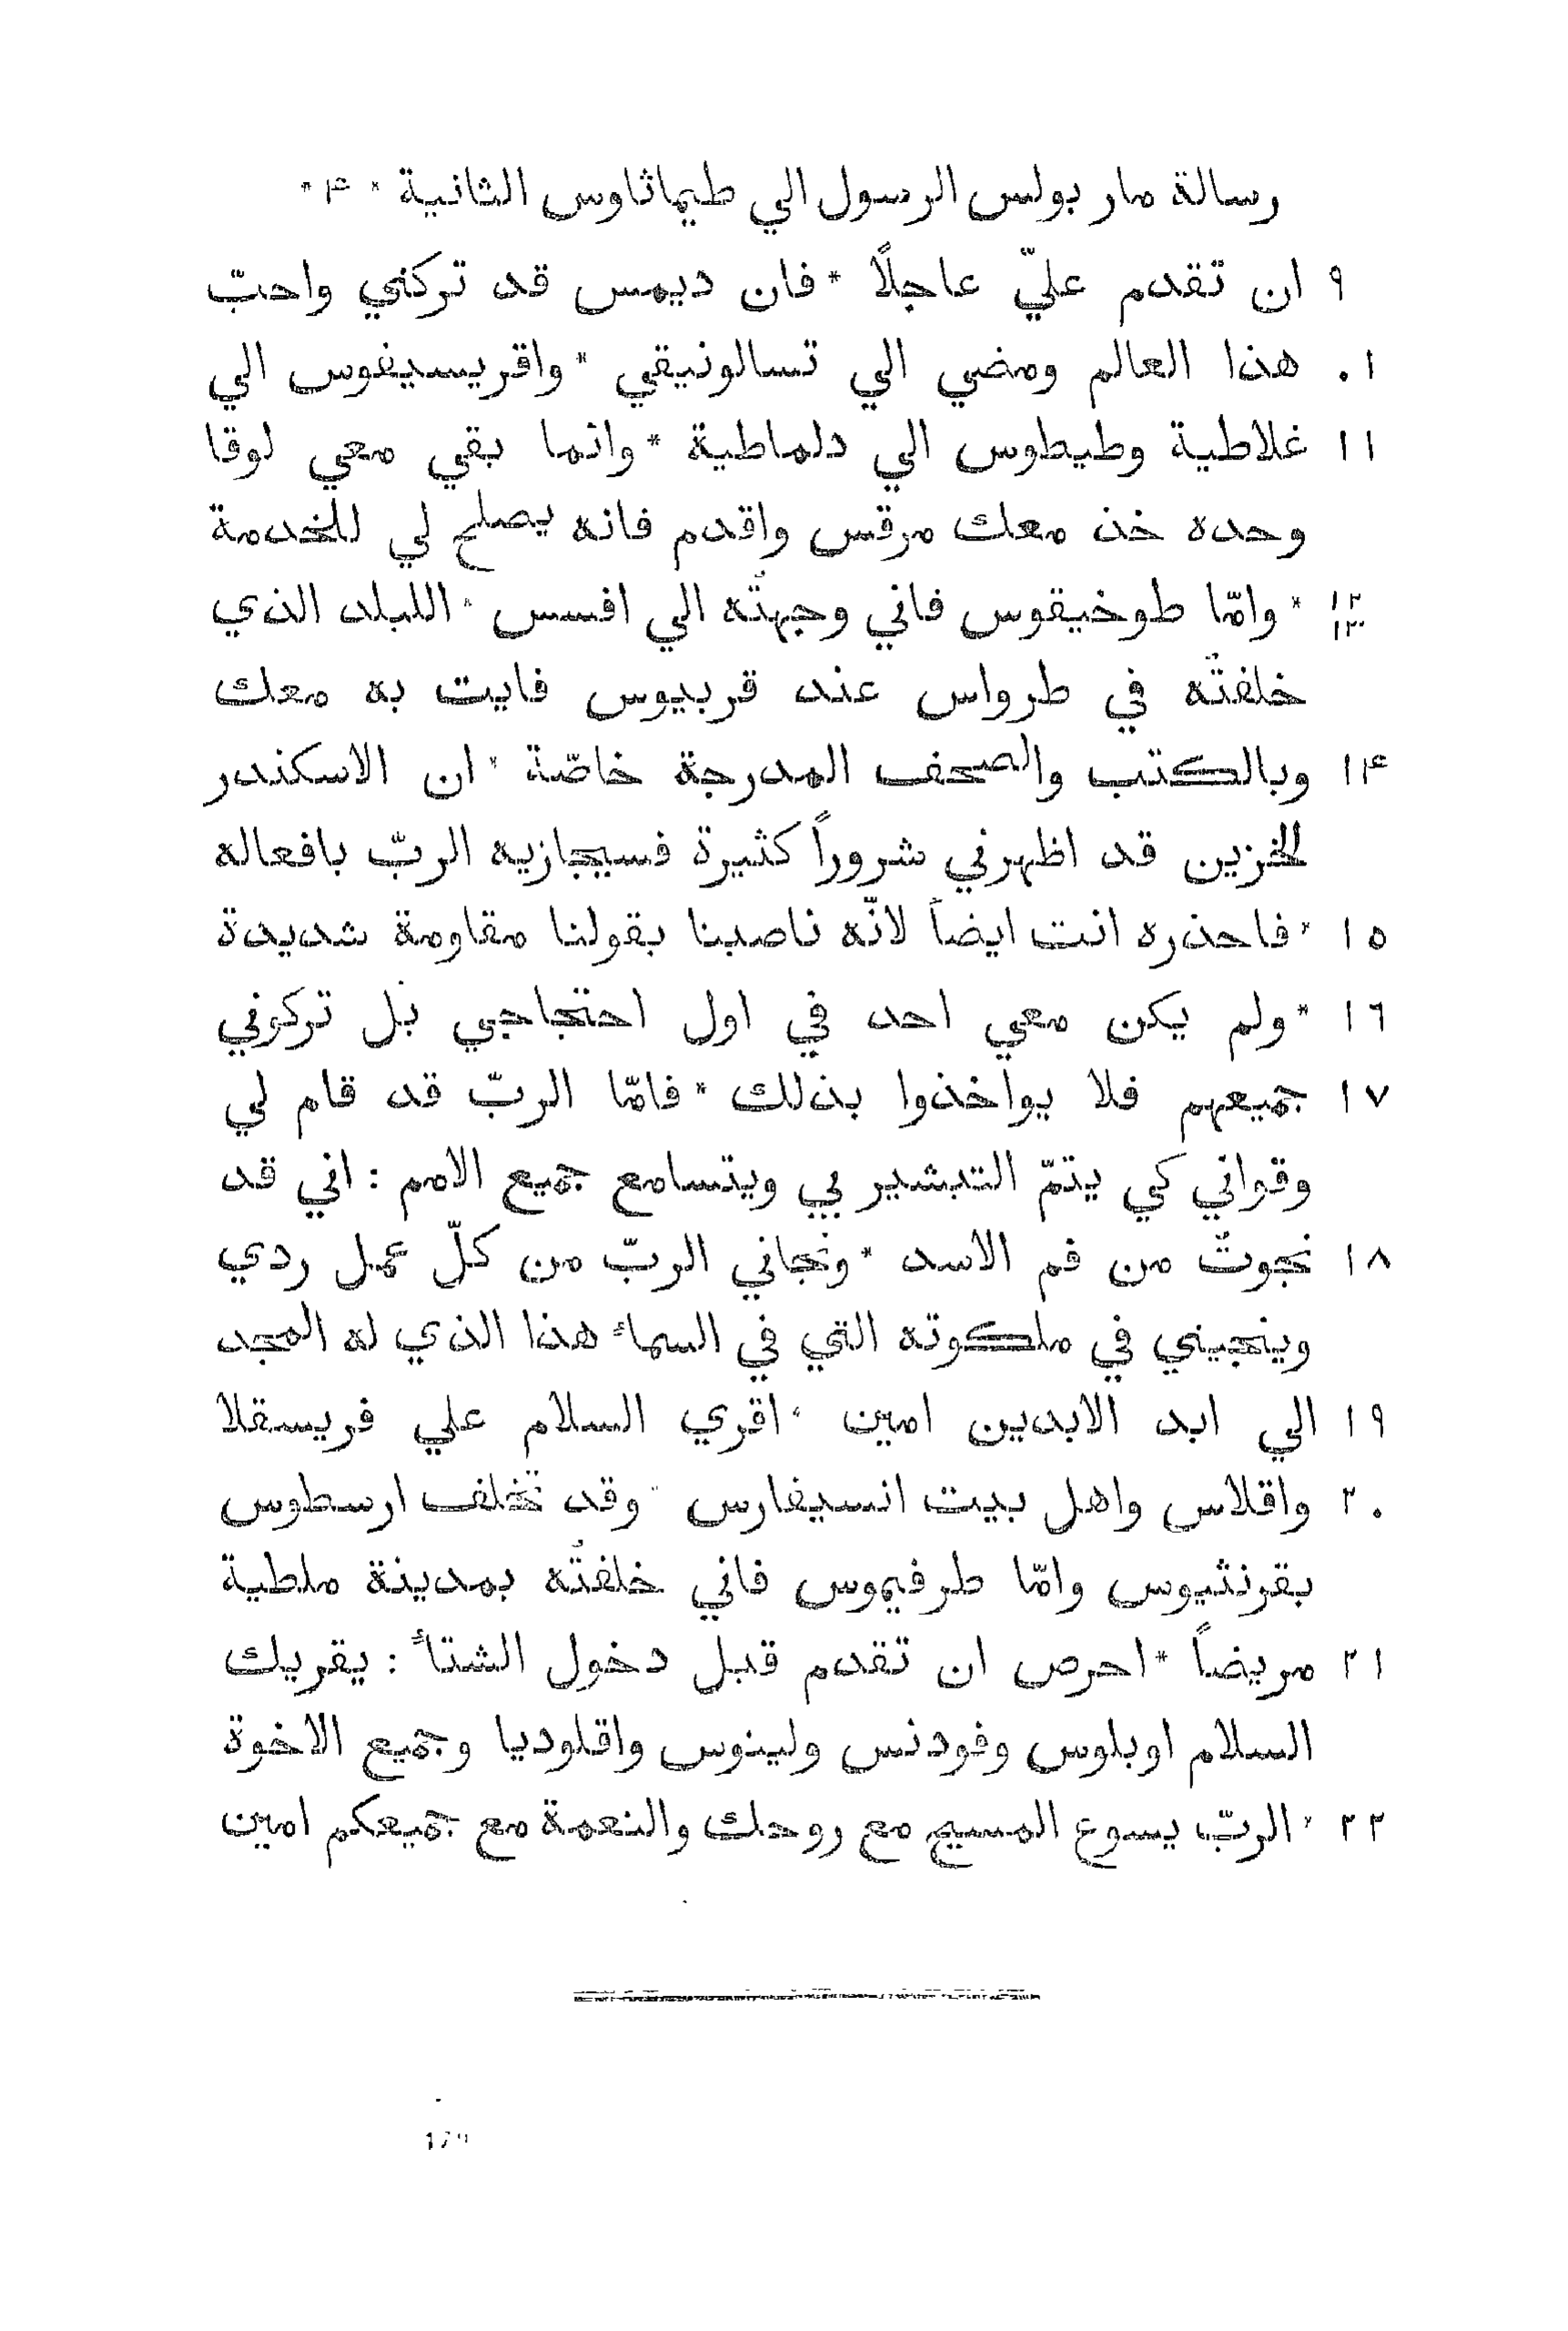 رسالة مار بولس الرسول الي طيماثاوس الثانية * ۴ *
٩ ان تقدم عليّ عاجلًا * فان ديمس قد تركني واحبّ
١٠ هذا العالم ومضي الي تسالونيقي * واقريسيفوس الي
١١ غلاطية وطيطوس الي دلماطية * وانما بقي معي لوقا
وحده خذ معك مرقس واقدم فانه يصلح لي للخدمة
١٢ ١٣ * وامّا طوخيقوس فاني وجهتُه الي افسس * اللبلد الذي
خلفتُه في طرواس عند قربيوس فايت به معك
١۴ وبالكتب والصحف المدرجة خاصّة * ان الاسكندر
الخزين قد اظهرني شروراً كثيرة فسيجازيه الربّ بافعاله
١٥ * فاحذره انت ايضاً لانّه ناصبنا بقولنا مقاومة شديدة
١٦ * ولم يكن معي احد في اول احتجاجي بل تركوني
١٧ جميعهم فلا يواخذوا بذلك * فامّا الربّ قد قام لي
وقواني كي يتمّ التبشير بي ويتسامع جميع الامم : اني قد
١٨ نجوتُ من فم الاسد * ونجاني الربّ من كلّ عمل ردي
وينجيني في ملكوته التي في السماء هذا الذي له المجد
١٩ الي ابد الابديين امين * اقري السلام علي فريسقلا
٢٠ واقلاس واهل بيت انسيفارس * وقد تخلف ارسطوس
بقرنثيوس وامّا طرفيموس فاني خلفتُه بمدينة ملطية
٢١ مريضاً * احرص ان تقدم قبل دخول الشتأ : يقريك
السلام اوبلوس وفودنس ولينوس واقلوديا وجميع الاخوة
٢٢ * الربّ يسوع المسيح مع روحك والنعمة مع جميعكم امين